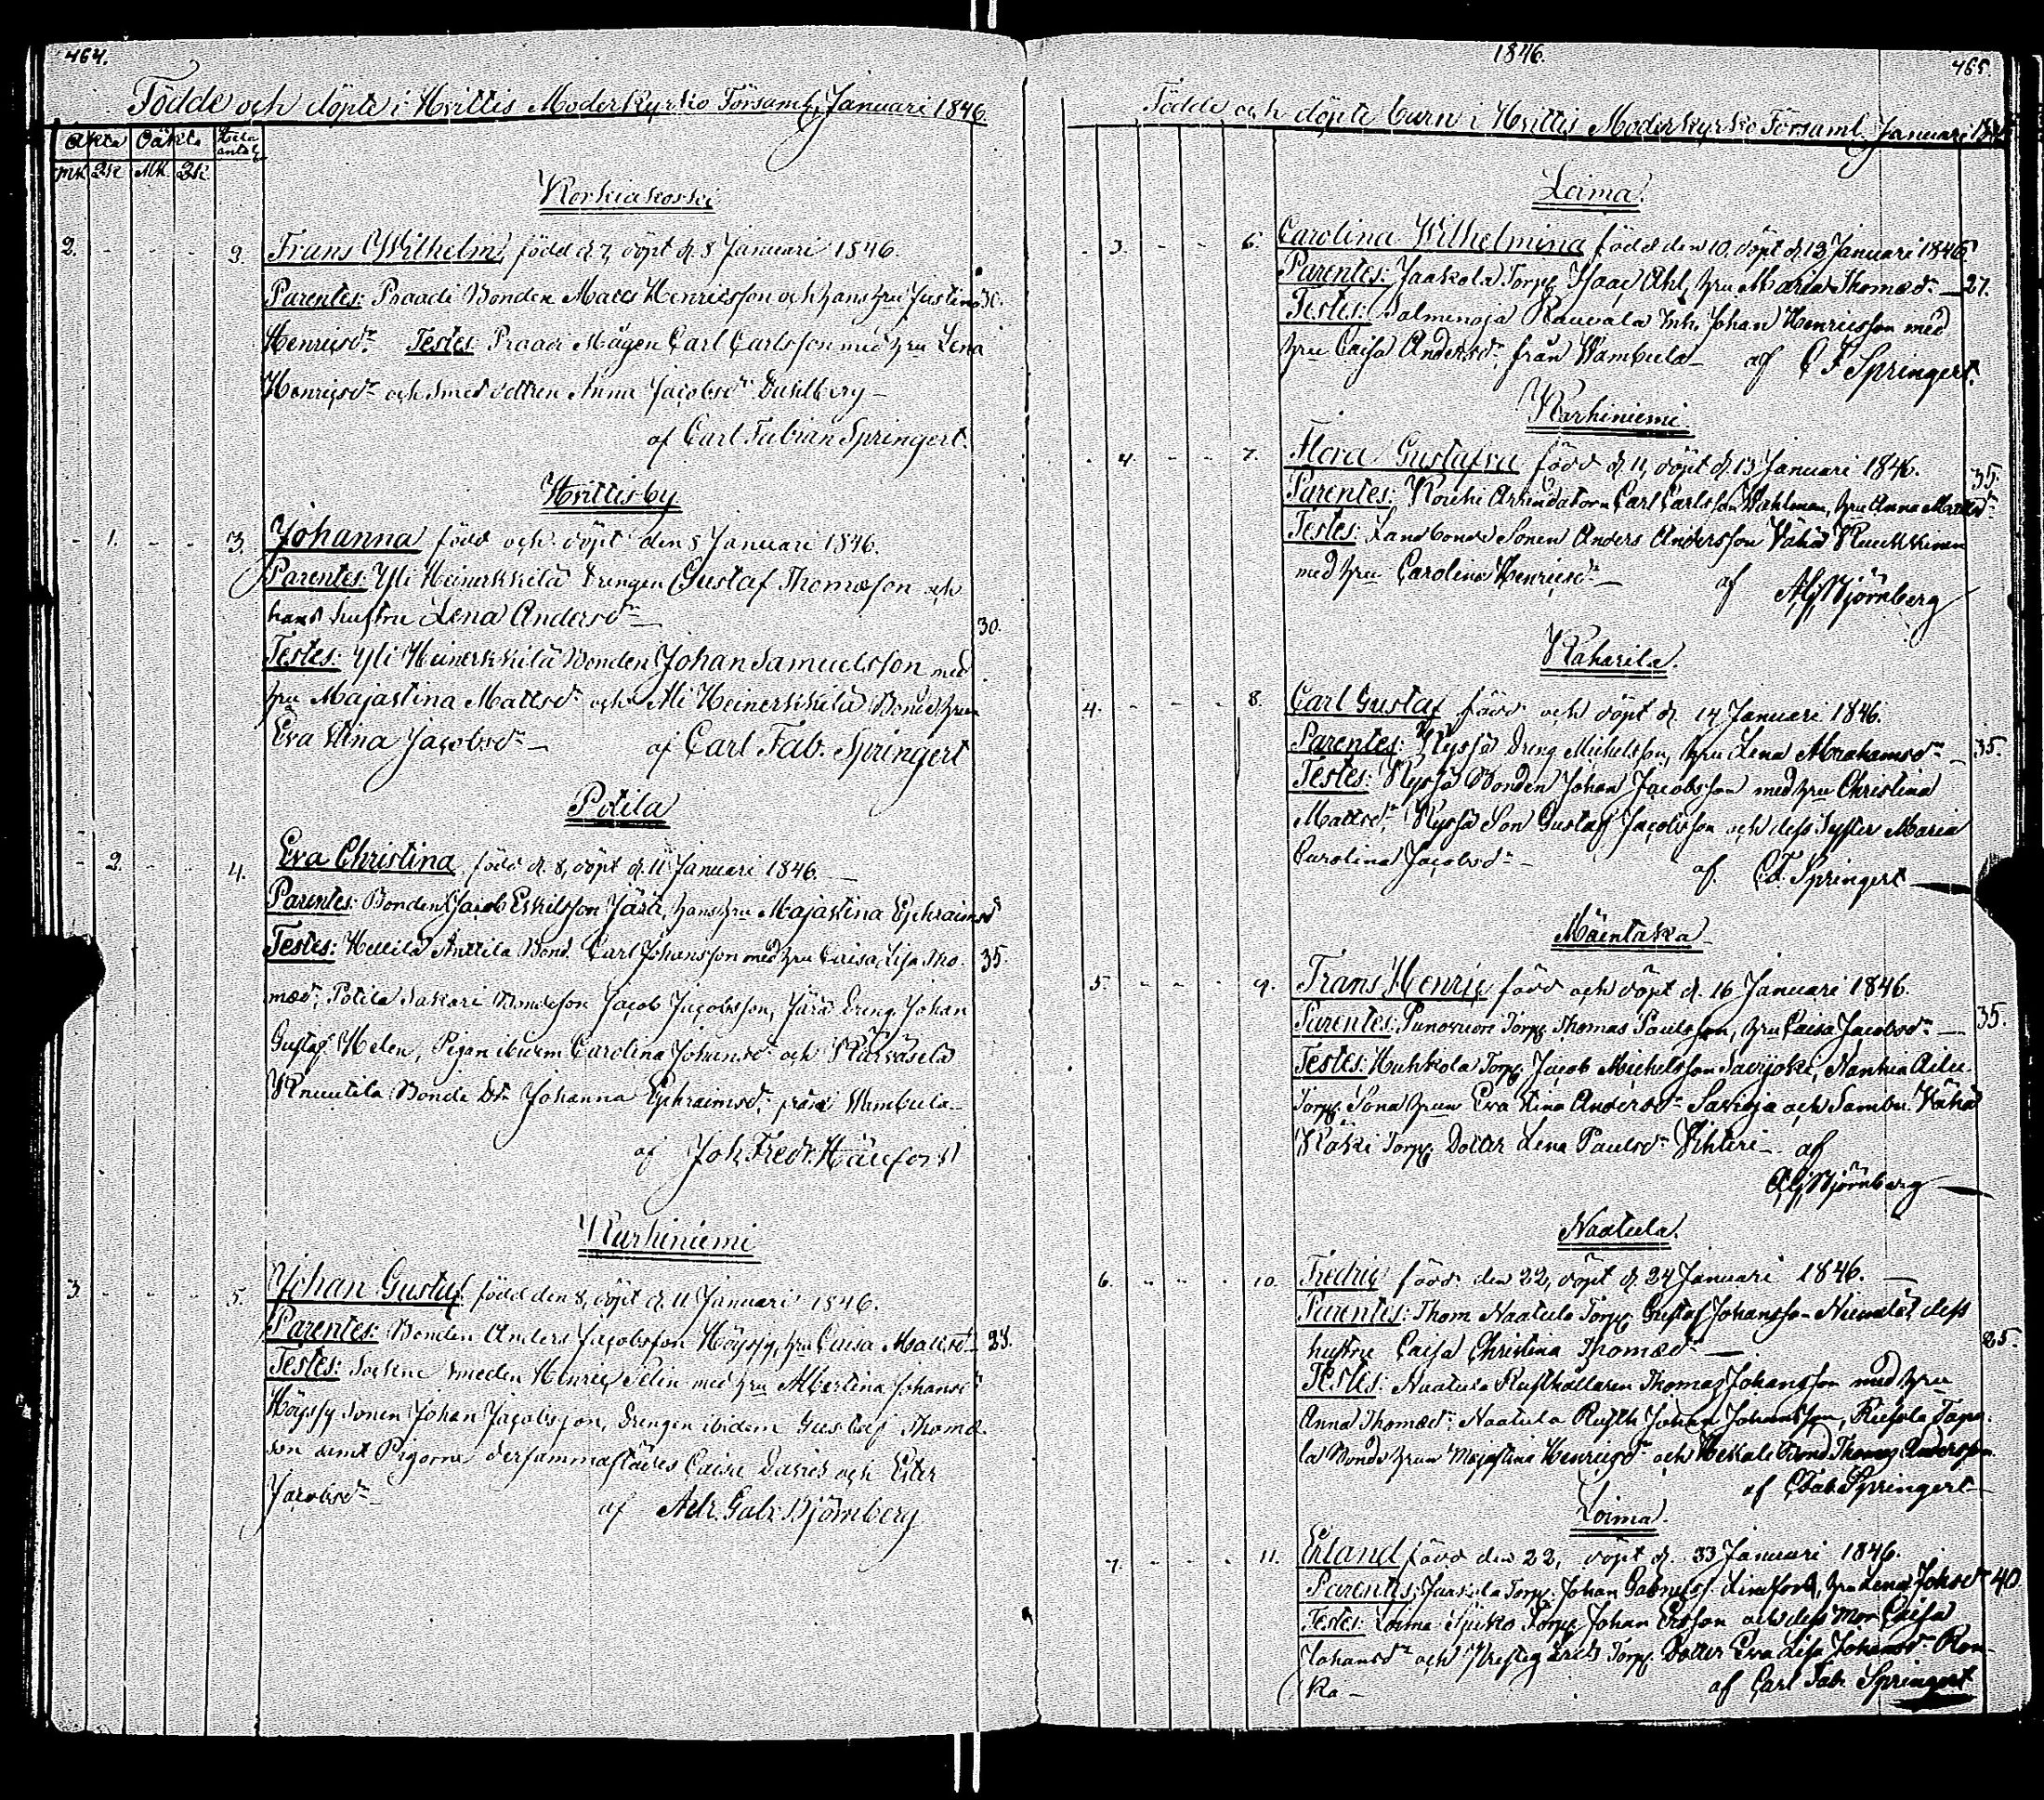 464.
Födde och döpte i Hvittis Moderkyrko Församl. Januari 1846.
Äkta Oäkta Hela antal
Mk Qk Mk Qk
Korkiakoski
2. - - - 2. Frans Wilhelm, född d. 7, döpt d. 8 Januari 1846.
Parentes: Praadi Bonden Matts Henricsson och hans hru Justina 30.
Henricsdr. Testes: Praadi Mågen Carl Carlsson med hru Lena
Henricsdr och smed dottren Anna Jacobsdr
af Carl Fabian Springert.
Hvittisby
- 1. - - 3. Johanna född och döpt den 8 Januari 1846.
Parentes: Yli Heinerkkilä Drengen Gustaf Thomæson och
hans hustru Lena Andersdr 30.
Testes: Yli Heinerkkilä Bonden Johan Samuelsson med
hru Majastina Mattsdr och Ali Heinerkkilä Bond. hrun
Eva Stina Jacobsdr - af Carl Fab. Springert
Potila
- 2. - - 4. Eva Christina, född d. 8, döpt d. 11 Januari 1846.
Parentes: Bonden Jacob Eskilsson Järä, hans hru Majastina Ephraimsdr
Testes: Anttila Bond. Carl Johansson med hru Caisa Lisa Tho- 35.
mædr, Potila Sakari Bondeson Jacob Jacobsson, Järä Dreng Johan
Gustaf Helen, Pigan ibidem Carolina Johansdr och
Knuutila Bonde Dr Johanna Ephraimsdr från Wambula
af Joh. Fredr.
Karhiniemi
3. - - - 5. Johan Gustaf, född den 8, döpt d. 11 Januari 1846.
Parentes: Bonden Anders Jacobsson Höyssy, hru Caisa Mattsdr 28.
Testes: Sockne smeden Henric Pelin med hru Albertina Johansdr
Höyssy sonen Johan Jacobsson, Drengen ibidem Gustaf Thomæ-
son samt Pigorna dersammastädes Caisa Davidsdr och Ester
Jacobsdr - af Adr. Gabr. Björnberg
1846.
465.
Födde och döpte barn i Hvittis Moderkyrko Församl. Januari 1846
Loima.
- 3. - - 6. Carolina Wilhelmina född den 10, döpt d. 13 Januari 1846
Parentes: Jaakola Torp. Isaac Ahl, hru Maria Thomædr. - 27.
Testes: Salmenoja Rauvala Inh. Johan Henricsson med
hru Caisa Andersdr från Wambula - af C F Springert.
Karhiniemi
- 4. - - 7. Flora Gustafva född d. 11, döpt d. 13 Januari 1846. 35.
Parentes: Arrendatorn Carl Carlsson Wahlman, hru Anna
Testes: Landbonde Sonen Anders Andersson Vähä
med hru Carolina Henricsdr - af AG Björnberg
Raharila.
4. - - - 8. Carl Gustaf född och döpt d. 14 Januari 1846.
Parentes: Ryssä Dreng Michelsson, hru Lena Abrahamsdr - 35.
Testes: Ryssä Bonden Johan Jacobsson med hru Christina
Mattsdr, Ryssä Son Gustaf Jacobsson och dess Syster Maria
Carolina Jacobsdr - af CF. Springert
Mäentaka
5. - - - 9. Frans Henric född och döpt d. 16 Januari 1846. 35.
Parentes: Torp. Thomas Paulsson, hru Caisa Jacobsdr -
Testes: Huhkola Torp. Jacob Michelsson Savijoki,
Torp. Sons hrun Eva Stina Andersdr Savioja och Vähä
Torp. Dotter Lena Paulsdr - af
AG Björnberg
Naatula.
6. - - - 10. Fredric född den 22, döpt d. 24 Januari 1846.
Parentes: Thom. Naatula Torp. Gustaf Johansson dess
hustru Caisa Christina Thomædr. - 25.
Testes: Naatula Rusthållaren Thomas Johansson med hru
Anna Thomædr. Naatula Rusth. Johan Johansson,
la Bonde hrun Majastina Henricsdr och Bond. Thomas Andersson.
af CFab. Springert
Loima.
7. - - - 11. Erland född den 22, döpt d. 33 Januari 1846.
Parentes: Jaakola Torp. Johan Gabrielss. Lindfors, hru Lena Johsdr 40
Testes: Loima Torp. Johan Ersson och dess Mor Caisa
Johansdr och Torp. Dotter Eva Lisa Johansdr Ron-
ka - af Carl Fab. Springert